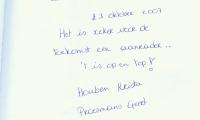 21 oktober 2007
Het is zeker voor de
toekomst een aanrader..
't is open top!
Houben Neida
Proesmans Gerd